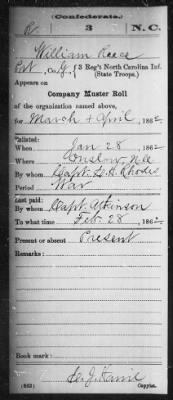 (Confederate.)
R 3 N.C.
William Reece
Pvt, Co. G, { 3 Reg't North Carolina Inf.
(State Troops.)
Appears on
Company Muster Roll
of the organization named above,
for March & April, 1862
Enlisted:
When Jan 28, 1862
Where Onslow N.C.
By whom Capt. Rhodes
Period War
Last paid:
By whom Capt. Atkinson
To what time Feb. 28, 1862
Present or absent Present
Remarks:
Book mark:
(642) Copyist.